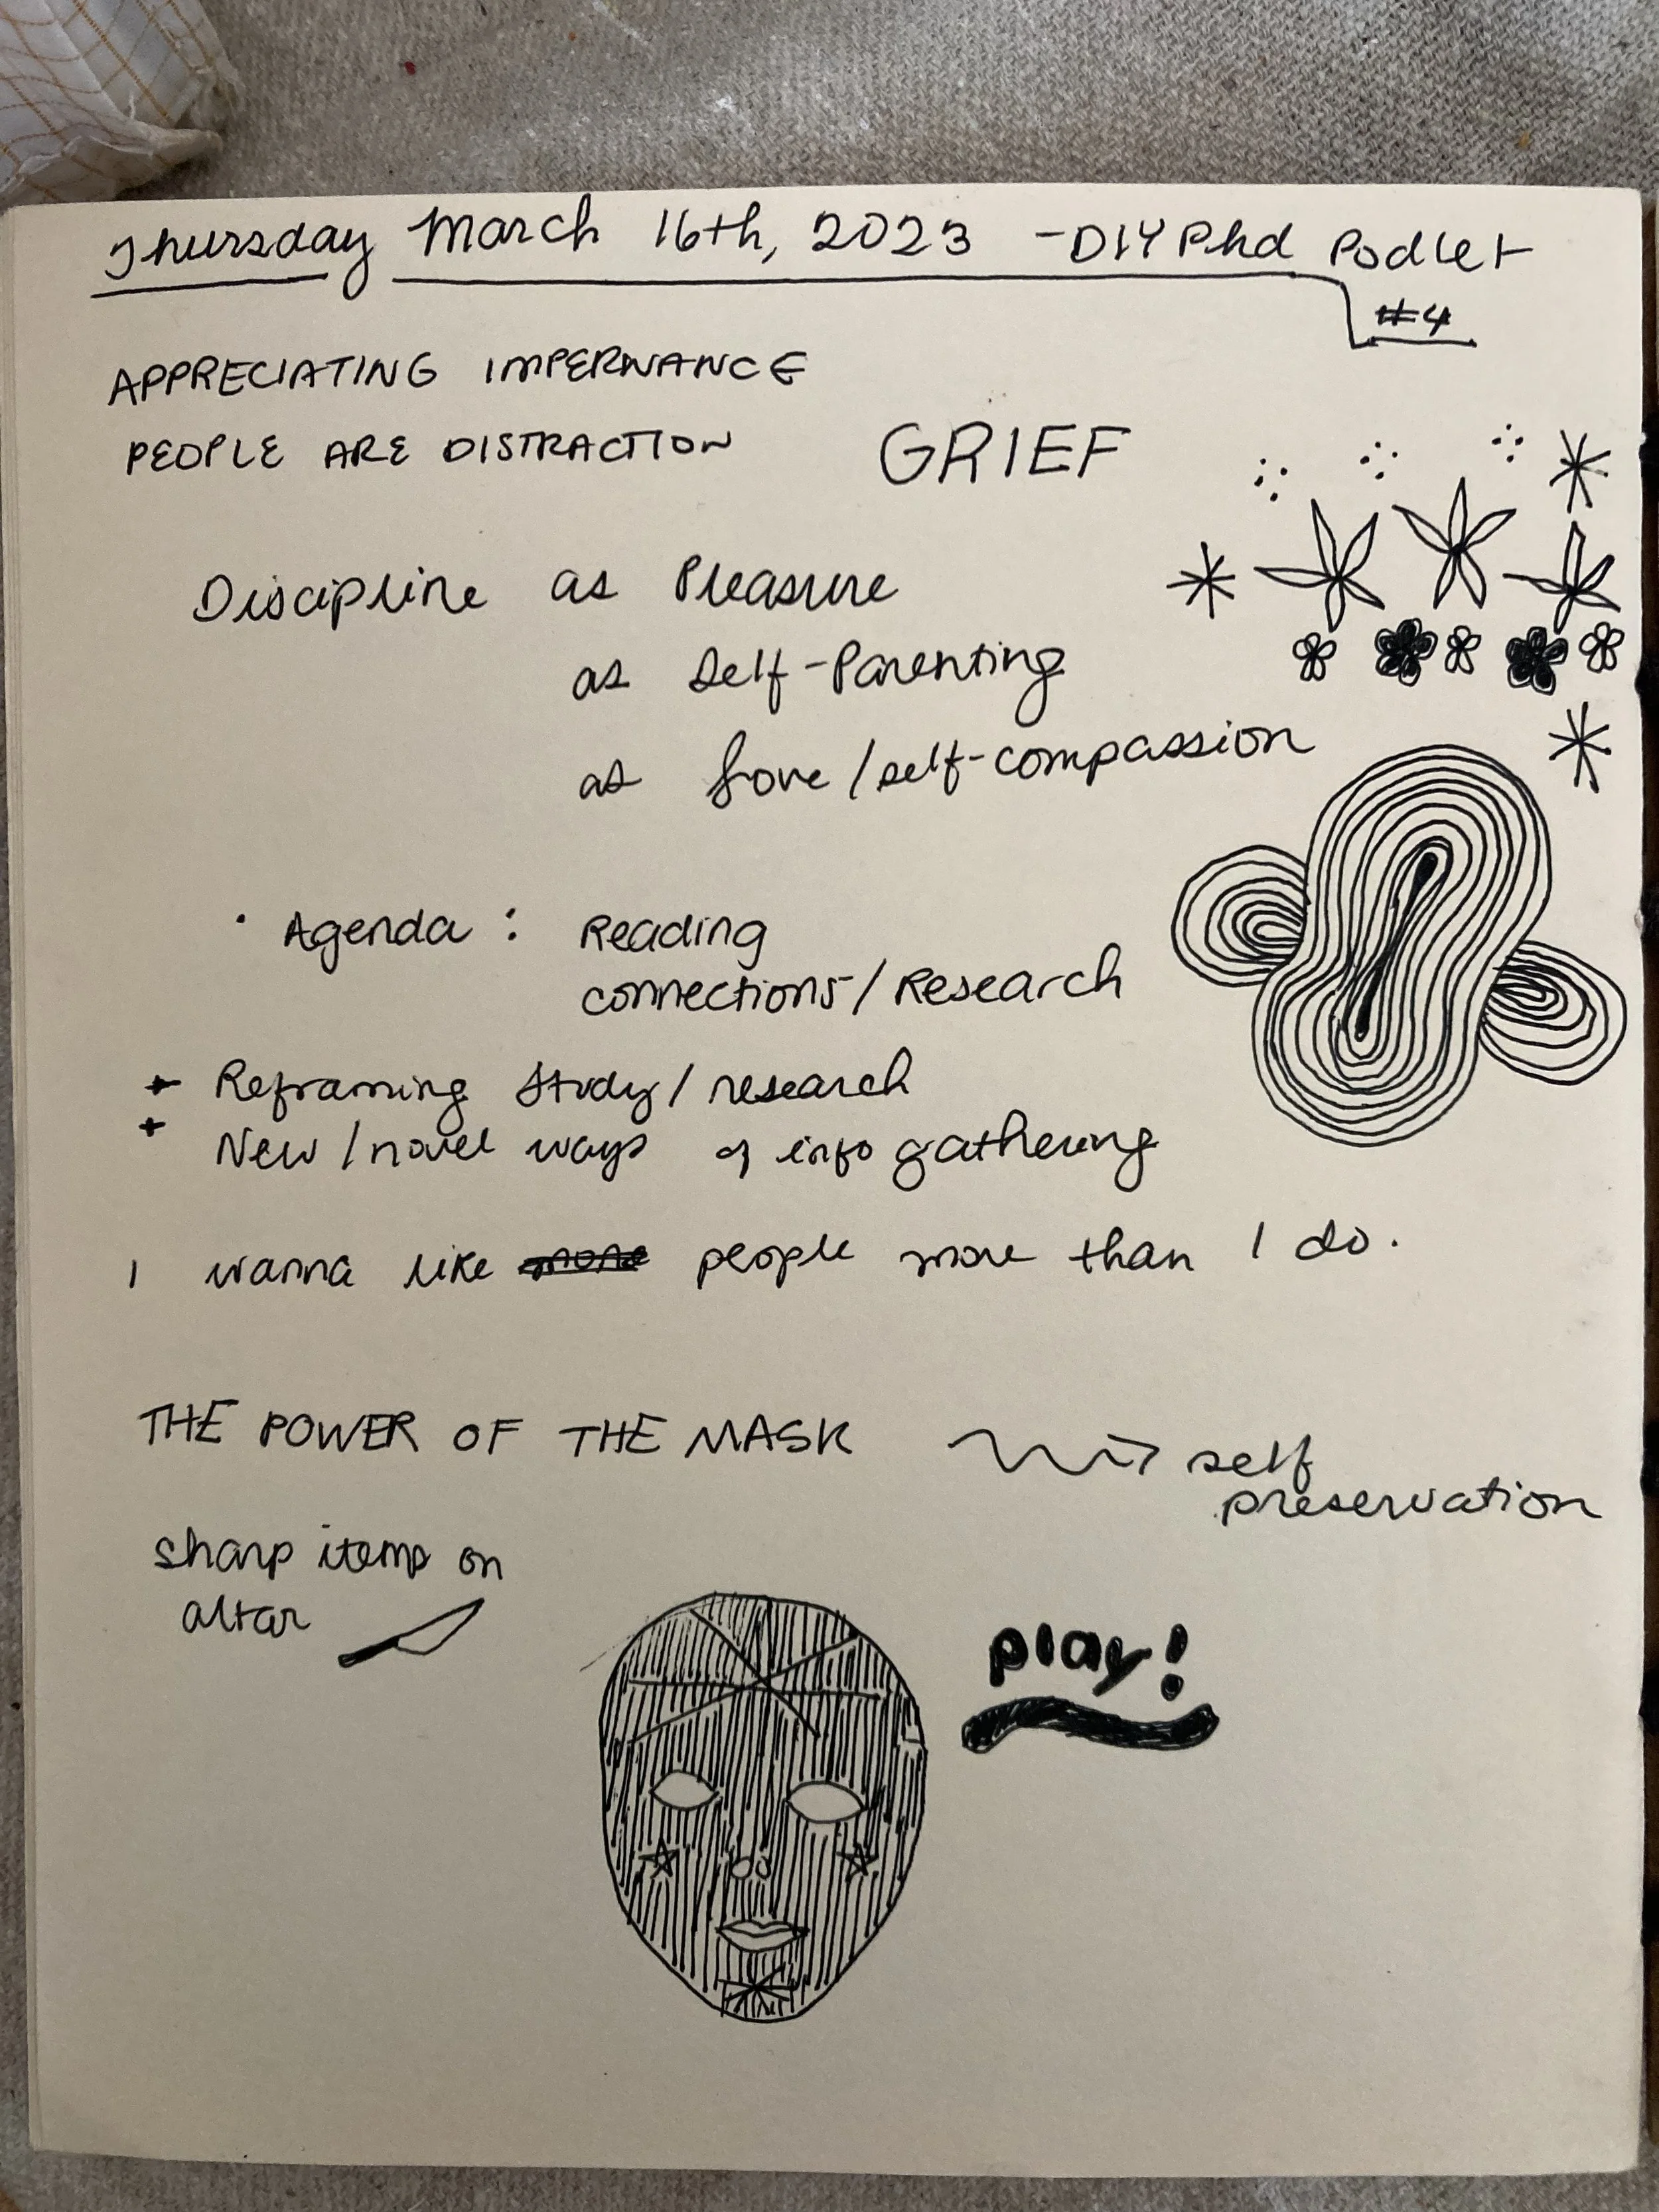 Thursday March 16th, 2023 - DIY Phd Podlet
#4
APPRECIATING IMPERNANCE
PEOPLE ARE DISTRACTION
GRIEF
Discipline as Pleasure
as Self-Parenting
as Love/self-compassion
• Agenda: Reading
connections/Research
+ Reframing Study/research
+ New/novel ways of info gathering
I wanna like more people more than I do.
THE POWER OF THE MASK
self
preservation
sharp items on
altar
play!